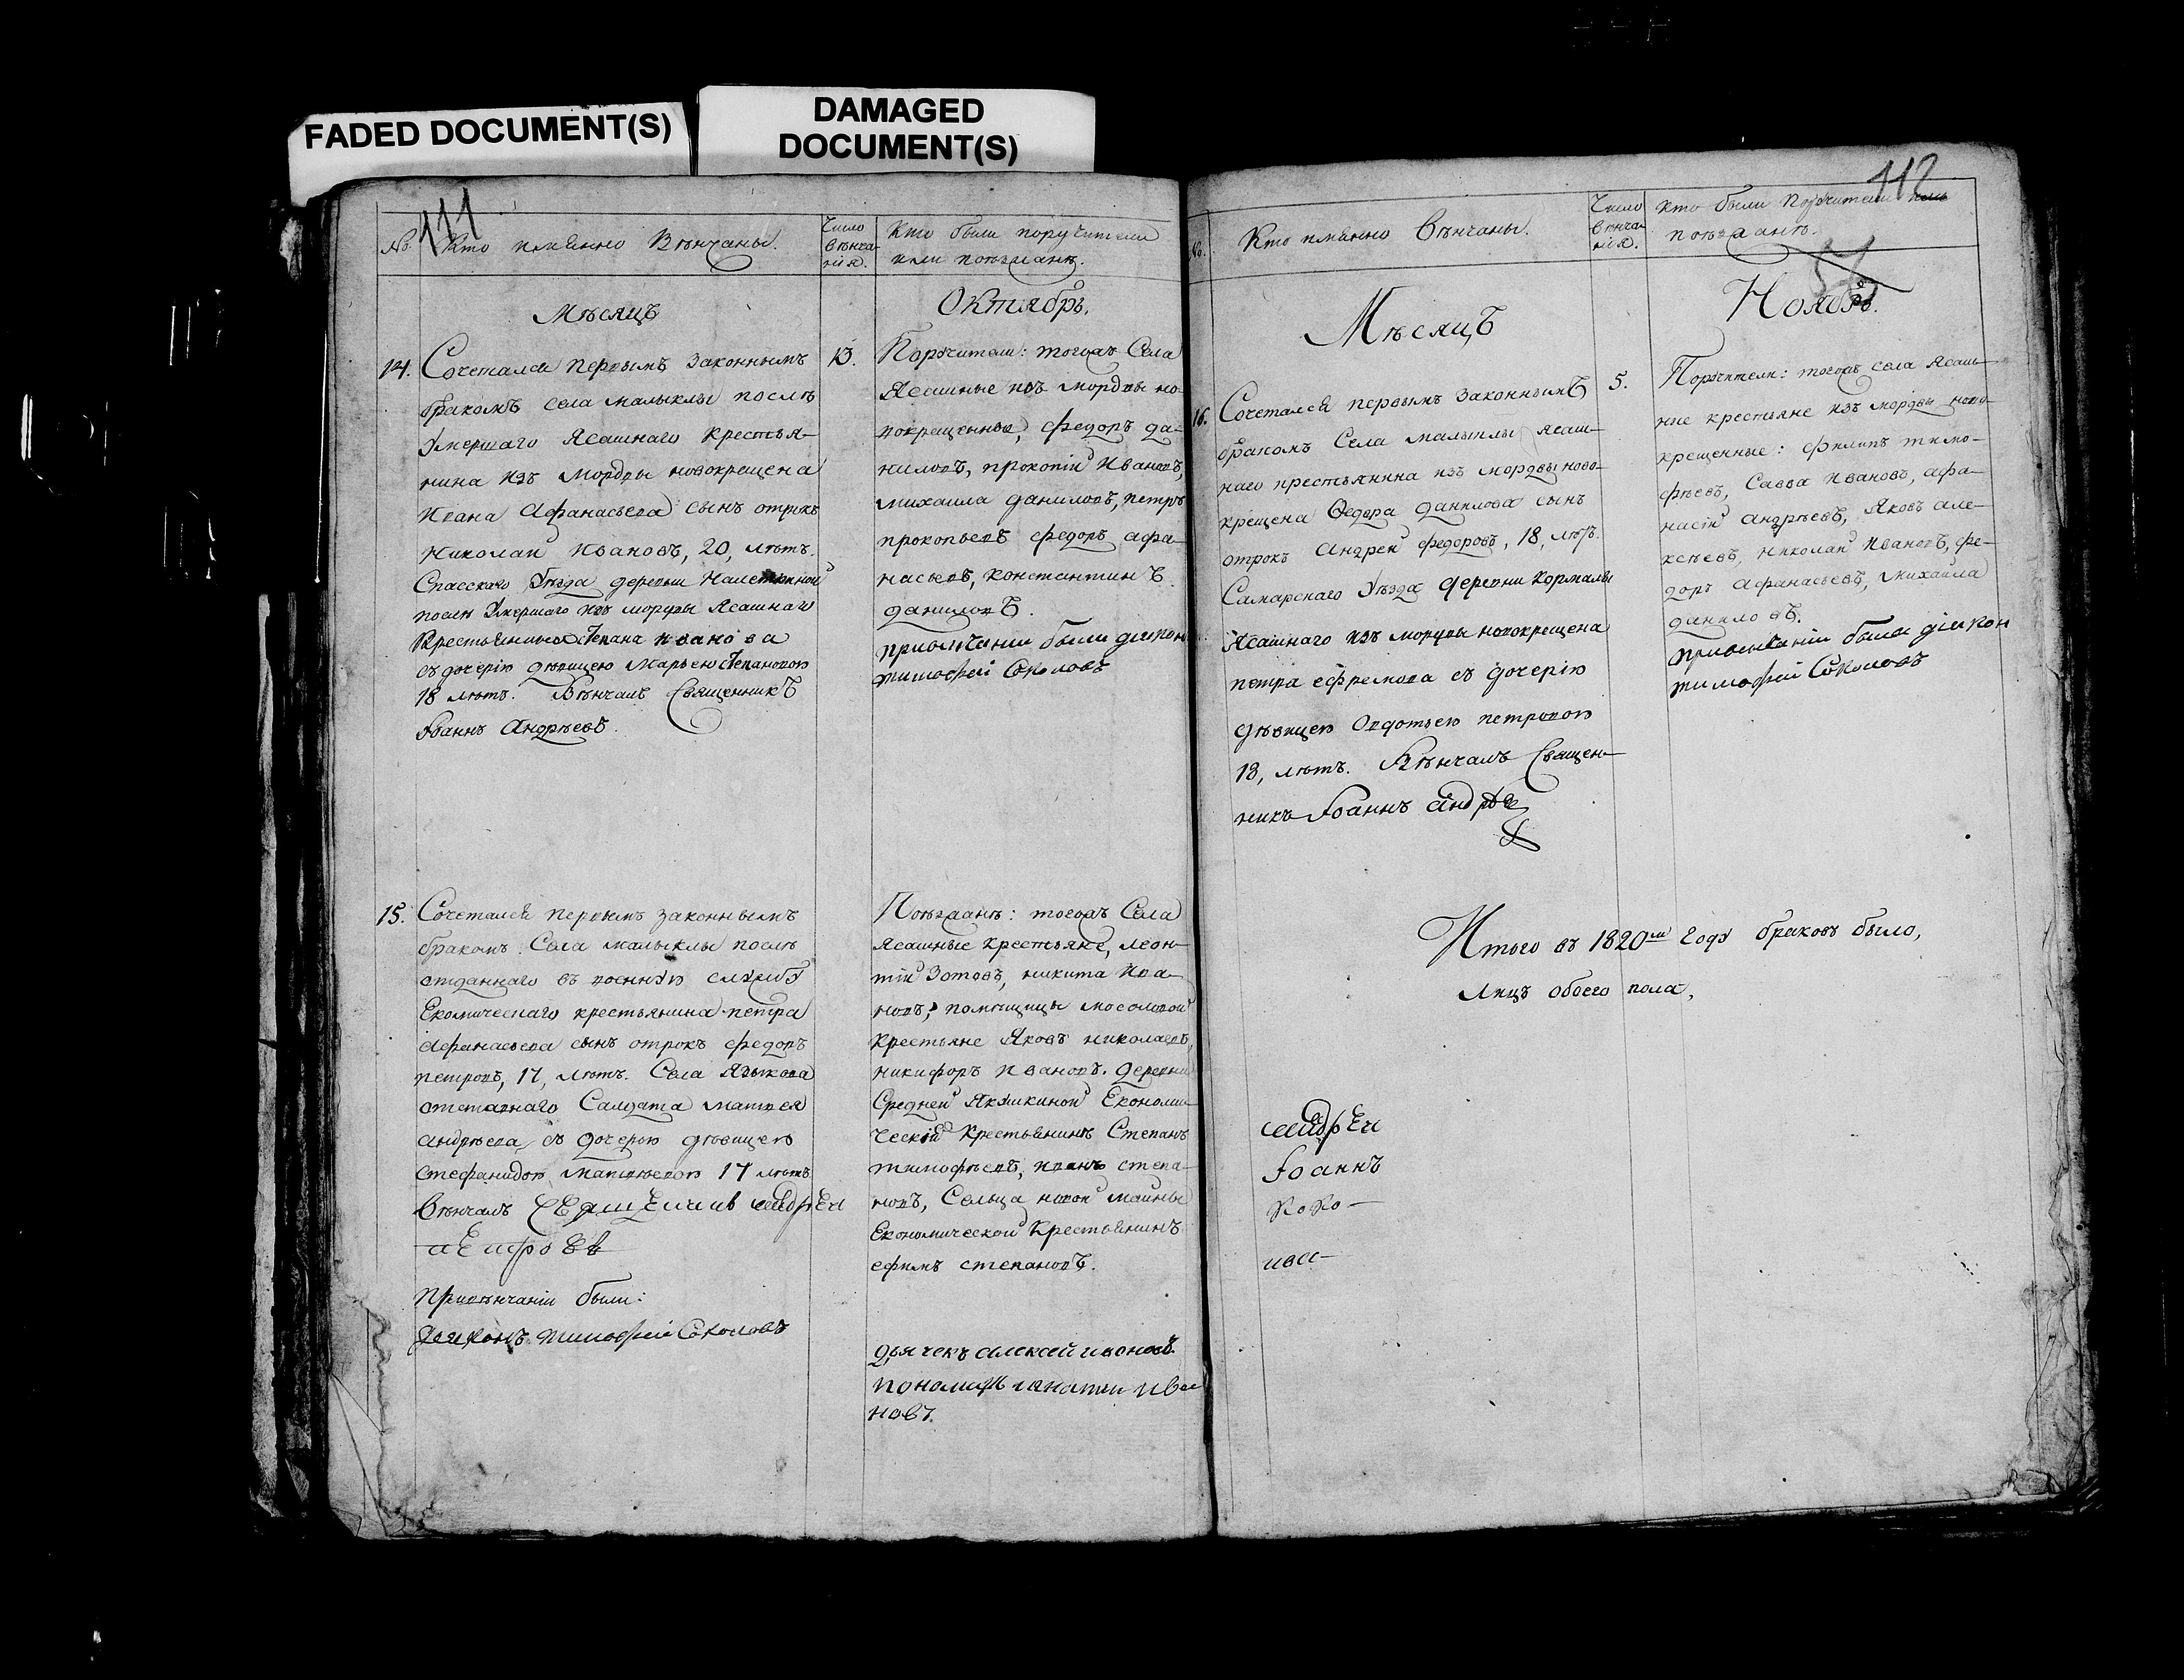 FADED DOCUMENT(S)
DAMAGED
DOCUMENT(S)
111
№
Кто имянно Вѣнчаны.
Число
вѣнча-
нія.
Кто были поручители
или поѣзжанѣ.
Мѣсяцъ
Октябрь.
14.
Сочетался первымъ законнымъ
бракомъ села малыклы послѣ
Умершаго Ясашнаго крестья-
нина изъ Мордвы новокрещена
Ивана Афанасьева сынъ отрокъ
Николай Ивановъ, 20, лѣтъ.
Спасскаго Уѣзда деревни
послѣ Умершаго изъ мордвы Ясашнаго
Крестьянина Степана Иванова
съ дочерію дѣвицею Марьею Степановою
18 лѣтъ. Вѣнчалъ Священникъ
Іоаннъ Андрѣевъ.
13.
Поручители: тогожъ Села
Ясашные изъ мордвы но-
вокрещенны, Федоръ да-
ниловъ, прокопій Ивановъ,
михаила даниловъ, петръ
прокопьевъ федоръ афа-
насьевъ, константинъ
даниловъ.
привѣнчаніи были діякон
тимофей Соколовъ
15.
Сочетался первымъ законнымъ
бракомъ: Села малыклы послѣ
отданнаго въ военную службу
Екомическаго крестьянина петра
афанасьева сынъ отрокъ федоръ
петровъ, 17, лѣтъ. Села Языкова
отставнаго Салдата матвея
андрѣева, съ дочерью дѣвицею
стефанидою матвѣевою 17 лѣтъ
Вѣнчалъ андрѣи
петровъ
Привѣнчаніи были:
Діяконъ тимофей Соколовъ
Поѣзжанѣ: тогожъ Села
ясашные крестьяне, леон-
тій Зотовъ, никита Ива-
новъ, помѣщицы мосоловой
крестьяне Яковъ николаевъ,
никифоръ Ивановъ. деревни
Средней Якушкиной Економи-
ческій Крестьянинъ Степанъ
тимофѣевъ, иванъ степа-
новъ, Сельца новой майны
Економической Крестьянинъ
ефимъ степановъ.
Дьячекъ алексей ивановъ.
пономарь игнатеи ива
новъ.
112
№.
Кто имянно Вѣнчаны.
Число
вѣнча-
нія.
Кто были Поручители или
поѣзжанѣ.
Мѣсяцъ
Ноябрь.
16.
Сочетался первымъ законнымъ
бракомъ Села малыклы ясаш-
наго крестьянина изъ мордвы ново-
крещена Ѳедора данилова сынъ
отрокъ Андрей федоровъ, 18, лѣтъ.
Самарскаго Уѣзда деревни Кормалы
Ясашнаго изъ мордвы новокрещена
петра ефремова съ дочерію
дѣвицею Овдотьею петровою
18, лѣтъ. Вѣнчалъ Священ-
никъ Іоаннъ андрѣев
5.
Поручители: тогожъ села ясаш-
ные крестьяне изъ мордвы ново-
крещенные: Филипъ тимо-
фѣевъ, Савва Ивановъ, афа-
насій андрѣевъ, Яковъ але-
ксѣевъ, николай Ивановъ, фе-
доръ афанасьевъ, Михаила
даниловъ.
привенчаніи были діякон
тимофей Соколовъ
Итого въ 1820м году браковъ было,
Лицъ обоего пола,
андрѣи
Іоаннъ
ива-